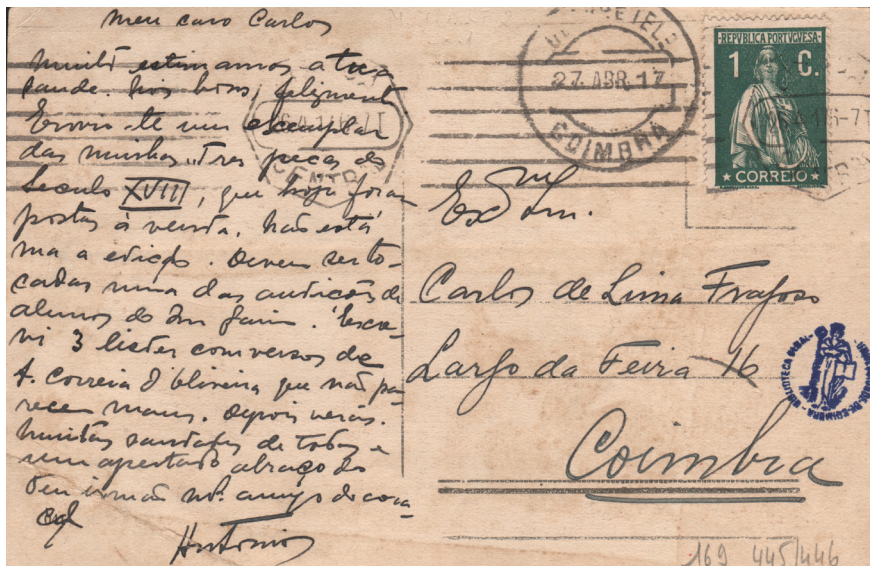 Meu caro Carlos
Muito estimamos a tua
saude. Nós bons, felizmente
Envio-te um exemplar
das minhas "Tres peças do
Seculo XVIII, que hoje foram
postas á venda. Não está
má a edição. Devem ser to-
cadas numa das audições de
alumos do
vi 3 lieder com versos de
A. Correia d'Oliveira que não pa-
recem maus. Depois verás.
Muitas saudades de todos e
um apertado abraço do
teu irmão mt. amigo do cora-
ção
Antonio
27. ABR. 17
COIMBRA
CENTRAL
REPVBLICA PORTVGVESA
1 C.
CORREIO
Exmo Snr.
Carlos de Lima Fragoso
Largo da Feira 16
Coimbra
BIBLIOTECA GERAL - UNIVERSIDADE DE COIMBRA
169 445/446